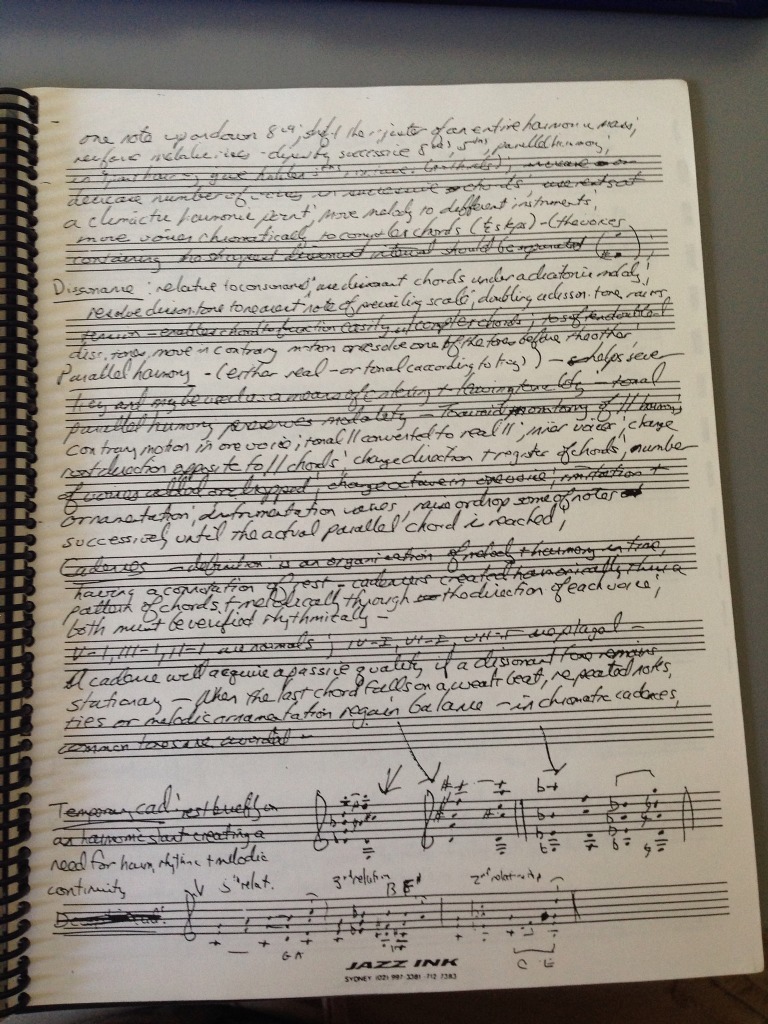 one note up or down 8va; shift the register of an entire harmonic mass;
reinforce melodic lines - successive parallel harmony;
decrease number of voices in successive chords;
a climactic harmonic point; move melody to different instruments;
move voices chromatically to complex chords (½ steps) - (the voices
containing the sharpest dissonant interval should be separated
Dissonance: relative to consonance; use dissonant chords under a diatonic melody;
resolve disson. tone to nearest note of prevailing scale; doubling a disson. tone raises
tension - enables chord to function easily w/ complex chords; to soften doubled
diss. tones, move in contrary motion or resolve one of the tones before the other;
Parallel harmony - (either real - or tonal (according to key)) - helps sever
key and may be used as a means of entering + leaving tonality - tonal
parallel harmony preserves modality - To avoid monotony of // harmony
contrary motion in one voice; tonal // converted to real //; inner voices change
root direction opposite to // chords; change direction + register of chords; number
of voices added or dropped; change octave in one voice; imitation +
ornamentation; instrumentation varies; raise or drop some of notes
successively until the actual parallel chord is reached;
Cadences - definition: is an organization of melody + harmony in time,
having a connotation of rest - cadences created harmonically thru a
pattern of chords + melodically through the direction of each voice;
both must be verified rhythmically -
V-I, III-I, II-I are normals; IV-I, VI-I, VII-I are plagal -
A cadence will acquire a passive quality if a dissonant tone remains
stationary - When the last chord falls on a weak beat, repeated notes,
ties or melodic ornamentation regain balance - in chromatic cadences,
common tones are avoided -
Temporary cad: rest briefly on
an harmonic start creating a
need for harm, rhythmic + melodic
continuity
5th relat. 3rd relation 2nd relation
B E
G A C E
JAZZ INK
SYDNEY (02) 997 3381 · 712 7383